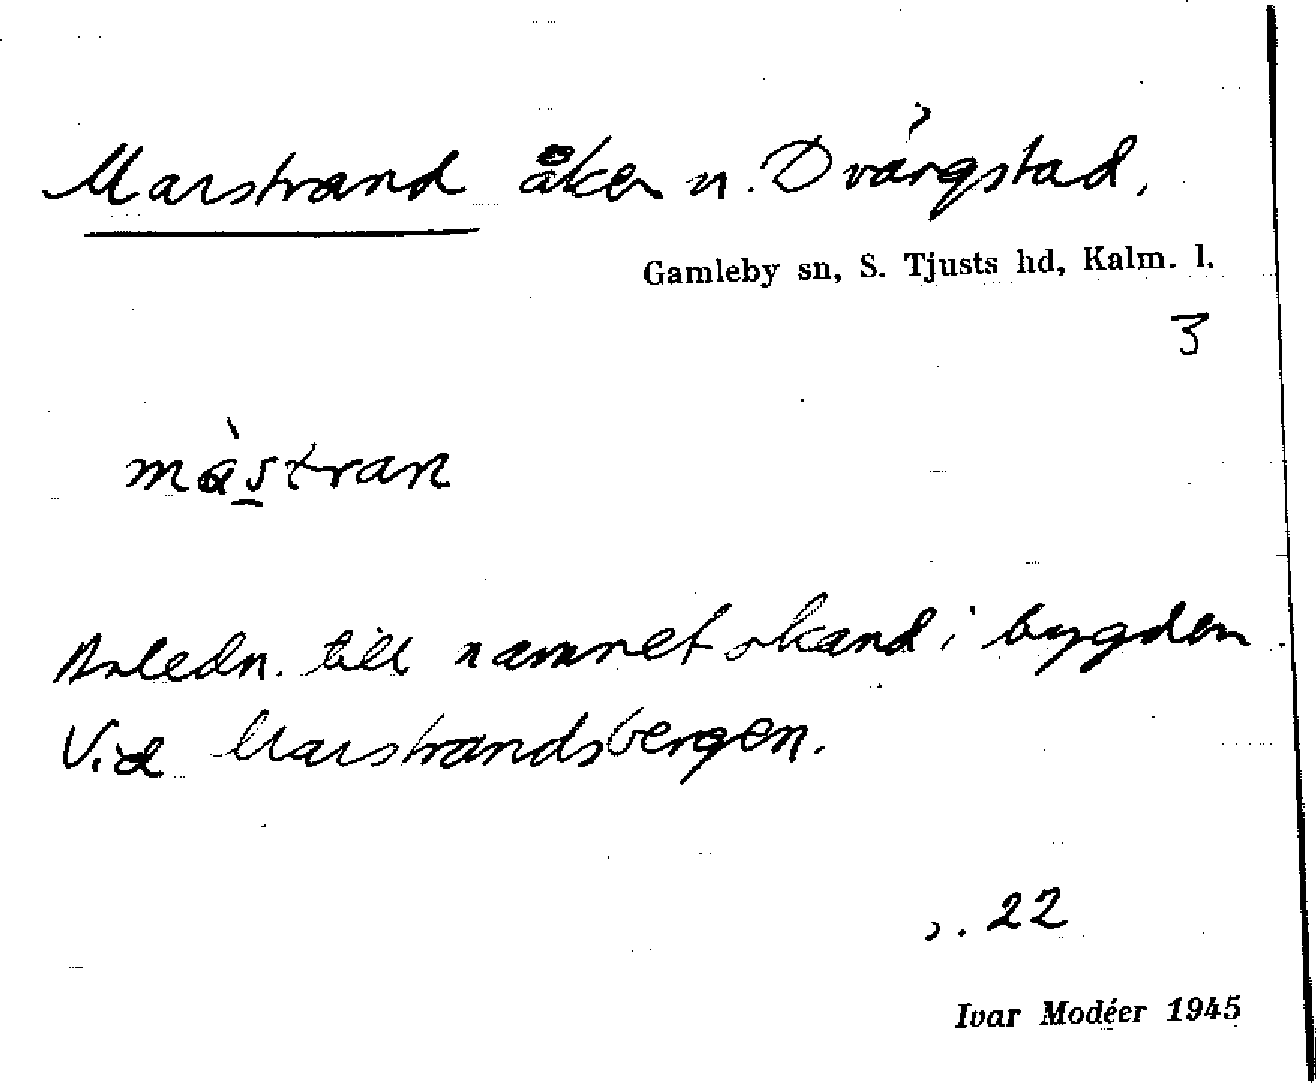 Marstrand åker n. Dvärgstad.
Gamleby sn, S. Tjusts hd, Kalm. l.
3
màstran
Anledn. till namnet okänd i bygden.
Vid Marstrandsbergen.
s. 22
Ivar Modéer 1945